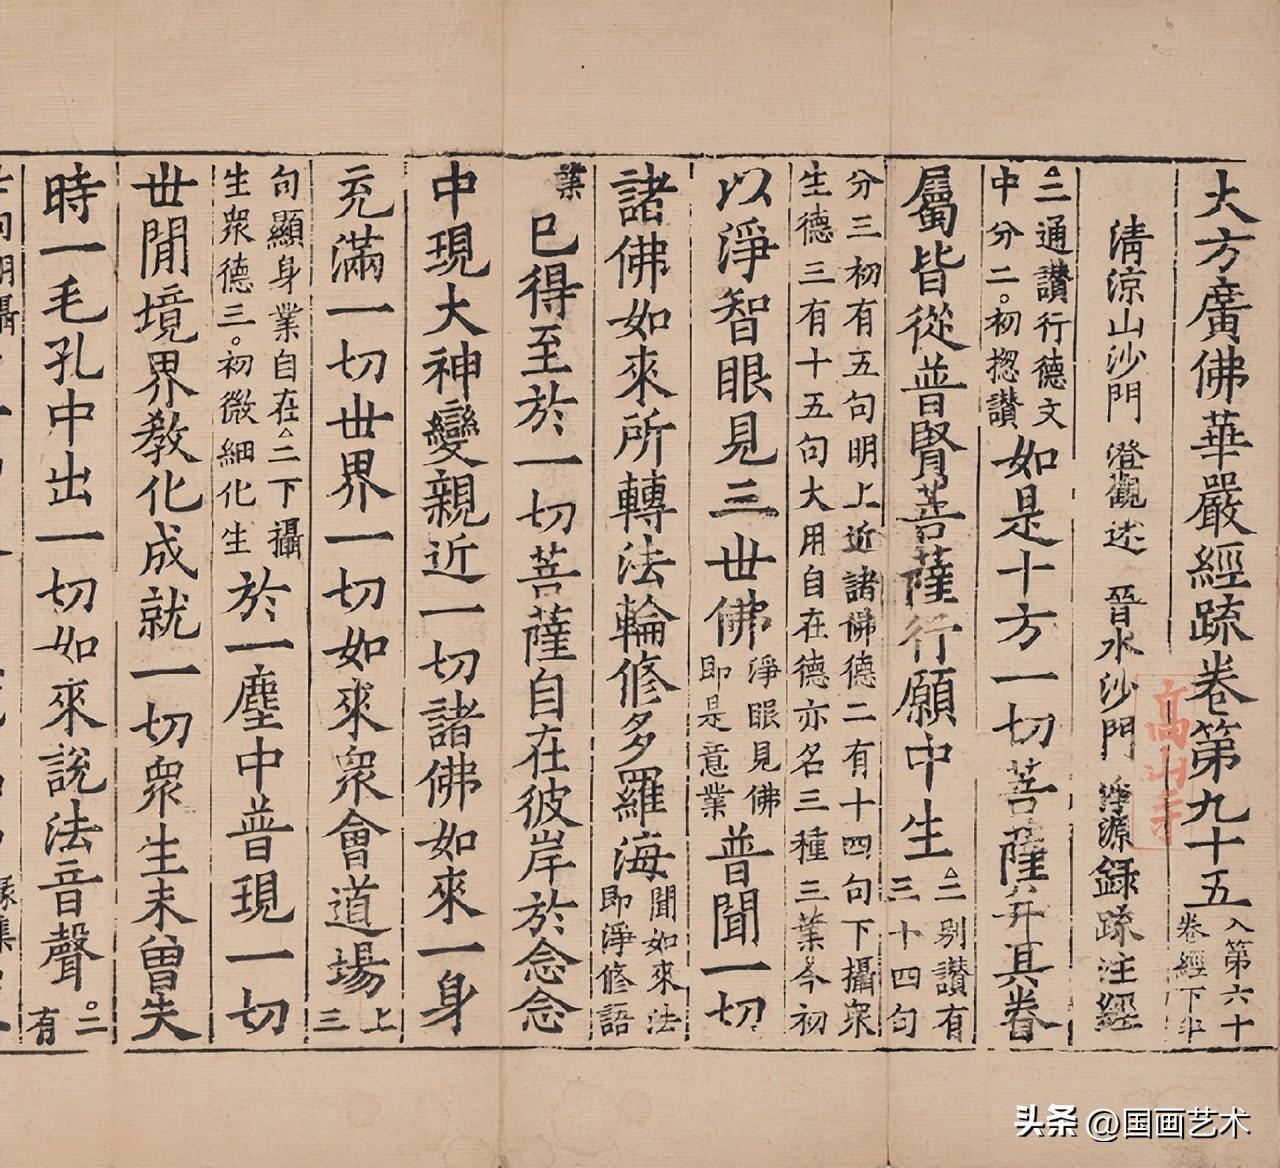 大方廣佛華嚴經䟽卷第九十五 入第六十卷經下半
清涼山沙門 澄觀述 晉水沙門 淨源録䟽注經
高山寺
△二通讃行德文中分二。初揔讃 如是十方一切菩薩并其眷
屬皆從普賢菩薩行願中生 △二别讃有三十四句
分三初有五句明上近諸佛德二有十四句下攝衆
生德三有十五句大用自在德亦名三種三業。今初
以淨智眼見三世佛 淨眼見佛即是意業 普聞一切
諸佛如來所轉法輪修多羅海 聞如來法即淨修語
業 已得至於一切菩薩自在彼岸於念念
中現大神變親近一切諸佛如來一身
充滿一切世界一切如來衆會道場 上三
句顯身業自在△二下攝生衆德三。初微細化生 於一塵中普現一切
世閒境界教化成就一切衆生未曾失
時一毛孔中出一切如來說法音聲 。二有
头条 @国画艺术